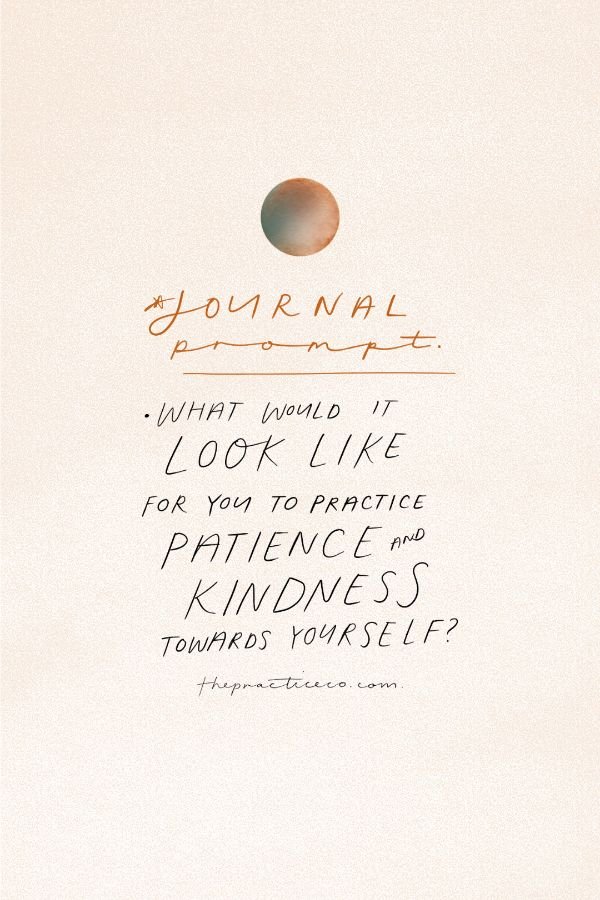 *JOURNAL
prompt.
•WHAT WOULD IT
LOOK LIKE
FOR YOU TO PRACTICE
PATIENCE AND
KINDNESS
TOWARDS YOURSELF?
thepracticeco.com.